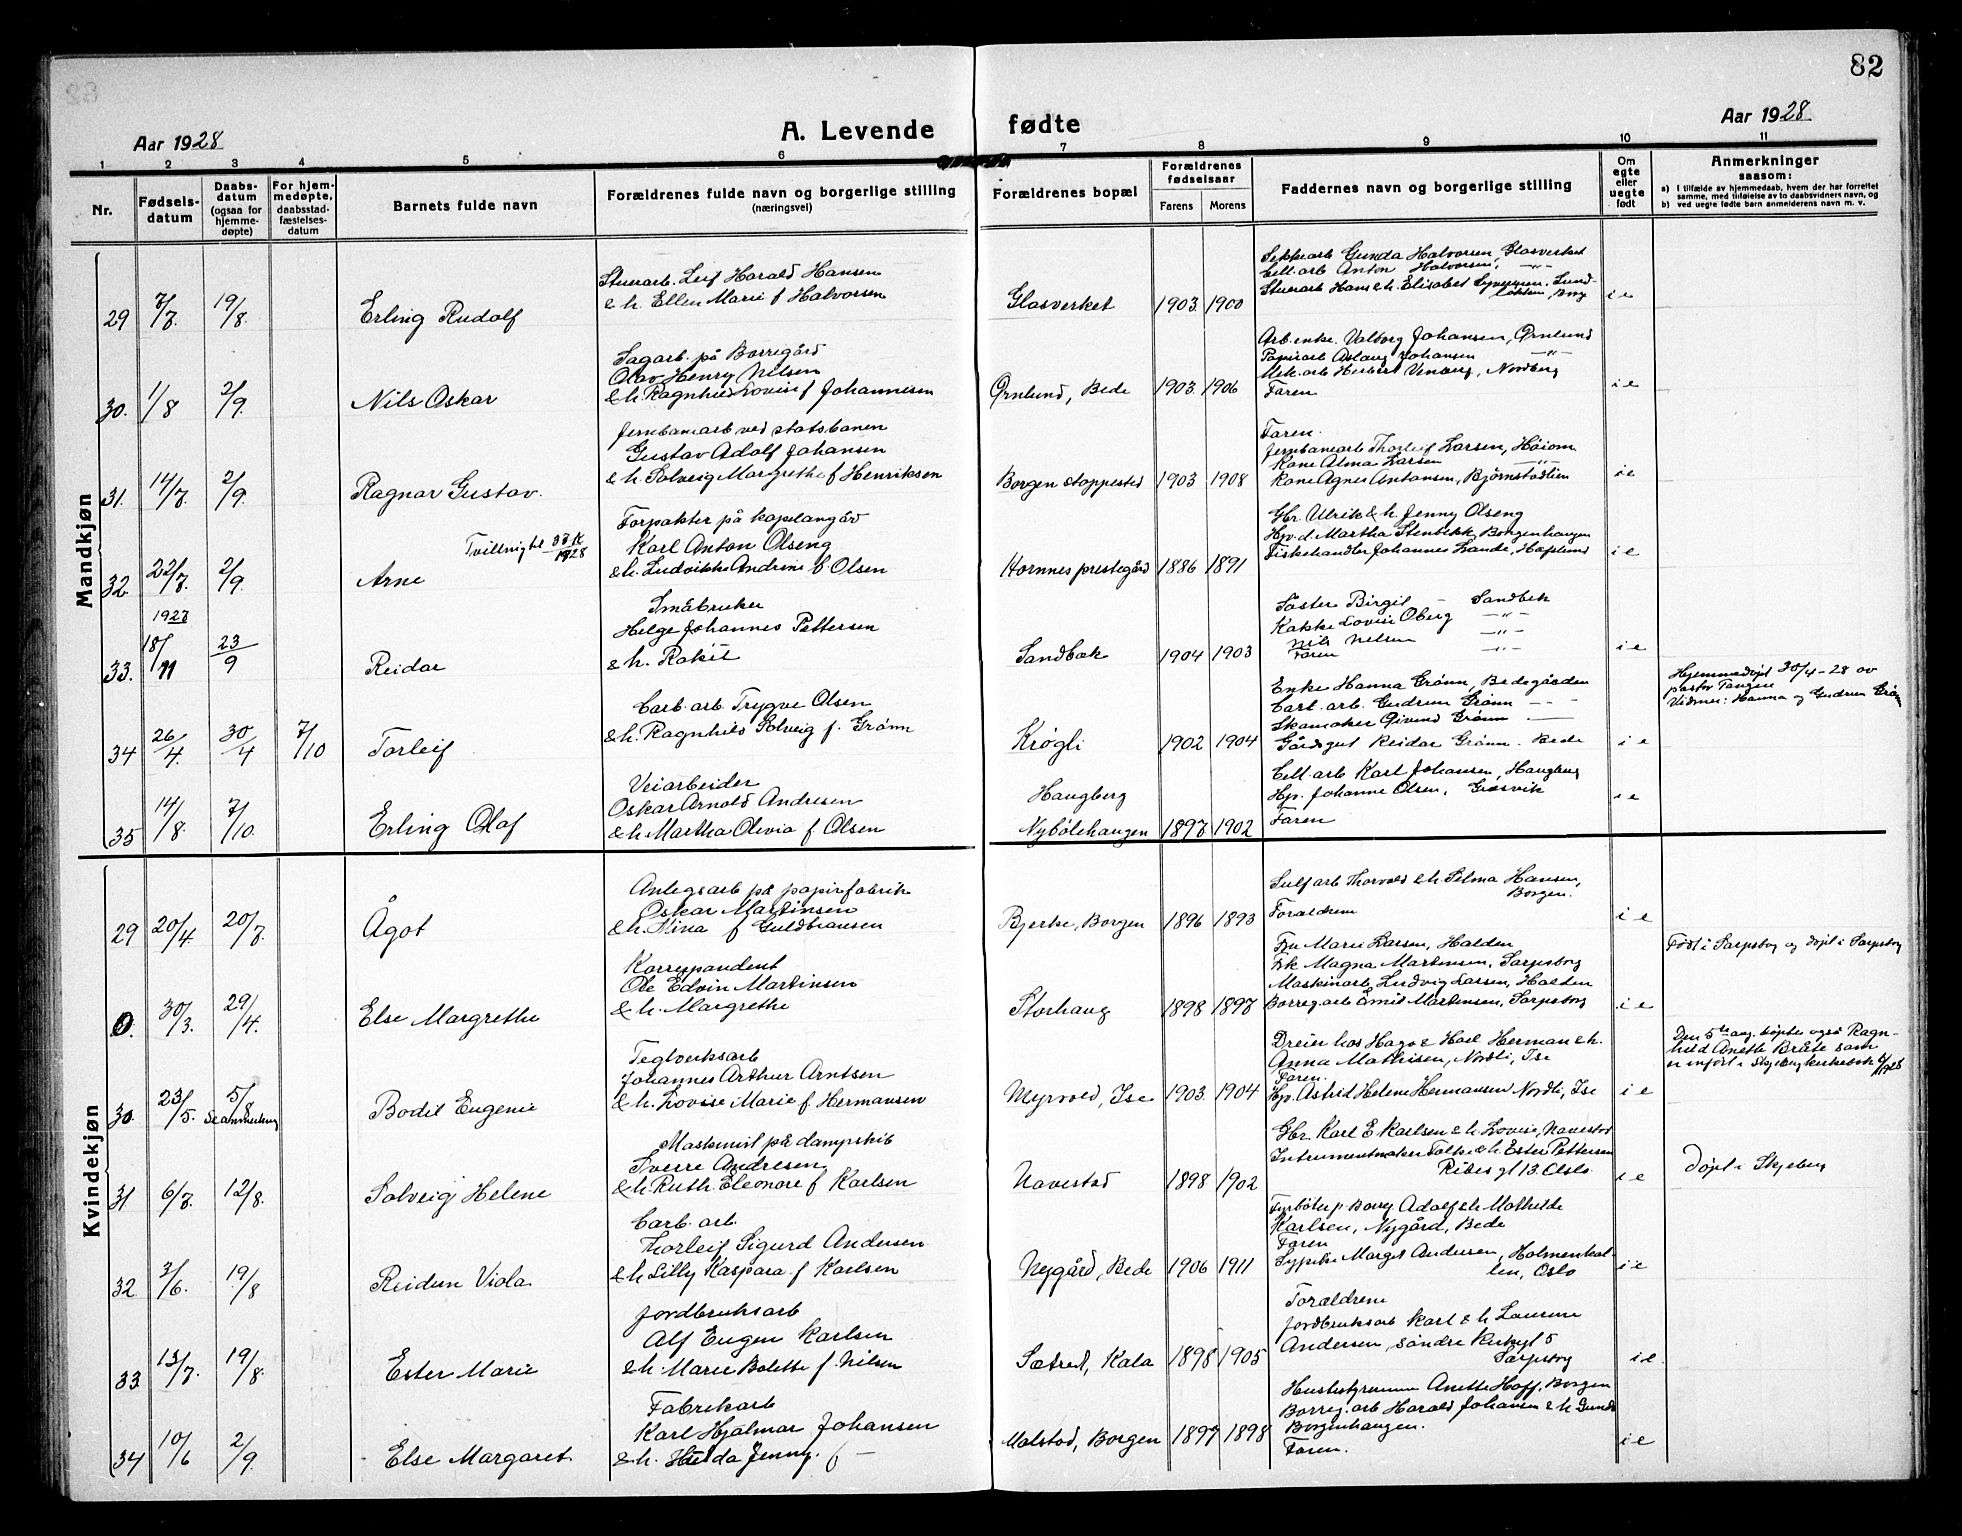 82
Aar 1928
A. Levende fødte
Aar 1928
1 2 3 4 5 6 7 8 9 10 11
Nr.
Fødsels-
datum
Daabs-
datum
(ogsaa for
hjemme-
døpte)
For hjem-
medøpte,
daabsstad-
fæstelses-
datum
Barnets fulde navn
Forældrenes fulde navn og borgerlige stilling
(næringsvei)
Forældrenes bopæl
Forældrenes
fødselsaar
Farens Morens
Faddernes navn og borgerlige stilling
Om
egte
eller
uegte
født
Anmerkninger
saasom:
a) I tilfælde av hjemmedaab, hvem der har forrettet
samme, med tilføielse av to daabsvidners navn, og
b) ved uegte fødte barn anmelderens navn m. v.
Mandkjøn
29 7/7. 19/8. Erling Rudolf
Stuerarb. Leif Harald Hansen
& h. Ellen Marie f Halvorsen
Glasverket 1903 1900
Gunda Halvorsen, Glasverket
Cell. arb Anton Halvorsen, -"-
Stuerarb Hans & h. Elisabet
i e
30. 1/8 2/9. Nils Oskar
Sagarb. på Borregård
Olav Henry Nilsen
& h. Ragnhild Lovise f Johannisen
Ørnlund, Bede 1903 1906
Arb. enke. Valborg Johansen, Ørnlund
Papirarb Aslaug Johansen -"-
Mek. arb Herbert Nordberg
Faren
i e
31. 14/7. 2/9. Ragnar Gustav.
Jernbanearb ved statsbanen
Gustav Adolf Johansen
& h. Solveig Margrethe f Henriksen
Borgen stoppested 1903 1908
Faren.
Jernbanearb Thorleif Larsen, Høiom
Kone Alma Larsen -"-
Kone Agnes Antonsen, Bjørnstadlien
i e
32 22/7. 2/9. Arne
Tvilling til 38 K/1928
Forpakter på kapelangård
Karl Anton Olseng
& h. Ludvikke Andrine f. Olsen
Hornnes prestegård 1886 1891
Gbr. Ulrik & h. Jenny Olseng
Hpv. d Martha Stenbekk, Borgenhaugen
Fiskehandler Johannes Lande, Hafslund
i e
33. 1927 18/11 23/9 Reidar
Småbruker
Helge Johannes Pettersen
& h. Rakil
Sandbæk 1904 1903
Søster Birgit - Sandbek
Kokke Lovise Oberg -"-
Nils Nelsen -"-
Faren -"-
i e
34 26/4. 30/4 7/10 Torleif
Carb. arb. Trygve Olsen
& h. Ragnhild Solveig f. Grönn
Krøgli 1902 1904
Enke Hanna Grönn, Bedegården
Carb. arb. Gudrun Grönn - -
Skomaker Øivind Grönn -
Gårdsgut Reidar Grönn. Bede
i e
Hjemmedöpt 30/4 - 28 av
pastor Tangen
Vidner: Hanna og Gudrun Grönn
35 14/8. 7/10. Erling Olaf
Veiarbeider
Oskar Arnold Andresen
& h. Martha Olivia f Olsen
Haugberg
Nybölehaugen 1897 1902
Cell. arb Karl Johansen, Haugberg
Hp. Johanne Olsen, Græsvik
Faren
i e
Kvindekjøn
29 20/4. 20/7. Ågot
Anlegsarb på papirfabrik
Oskar Martinsen
& h. Mina f Guldbransen
Bjerke, Borgen 1896 1893
Sulf arb Thorvald & h Selma Hansen,
Borgen.
Foraldrene
i e
0. 30/3. 29/4. Else Margrethe
Korrespondent
Ole Edvin Martinsen
& h. Margrethe
Storhaug 1898 1897
Fru Marie Larsen, Halden
Frk Magna Martinsen, Sarpsborg
Maskinarb. Ludvig Larsen, Halden
Borreg. arb Emil Martinsen, Sarpsborg
i e
Född i Sarpsborg og döpt i Sarpsborg
30. 23/5. 5/8. Se anmerkning Bodil Eugenie
Teglverksarb
Johannes Arthur Arntsen
& h. Lovise Marie f Hermansen
Myrvold, Ise 1903 1904
Dreier hos Herman & h.
Anna Mathisen, Nordli, Ise
Faren.
Hp. Astrid Helene Hermansen Nordli, Ise
i e
Den 5te aug. döptes også Ragn-
hild Anette Bråte som
er inført i Skjeberg kirkebok
31 6/7. 12/8. Solveig Helene
Maskinist på dampskib
Sverre Andresen
& h. Ruth Eleonore f Karlsen
Navestad 1898 1902
Gbr. Karl E Karlsen & h Lovise, Navestad
Instrumentmaker & h. Ester Pettersen
gt 13. Oslo
i e
döpt i Skjeberg
32 3/6. 19/8 Reidun Viola
Carb. arb.
Thorleif Sigurd Andersen
& h Lilly Kaspara f Karlsen
Nygård, Bede 1906 1911
Fyrböter p. Borreg Adolf & h Mathilde
Karlsen, Nygård, Bede
Faren
Sypike Margit Andersen, Holmenkol-
len, Oslo
i e
33 13/7. 19/8. Ester Marie
Jordbruksarb
Alf Eugen Karlsen
& h. Marie Bolette f. Nilsen
Sætret, Kala 1898 1905
Foraldrene
Jordbruksarb Karl & h Laurine
Andersen, Söndre 5
Sarpsborg
i e.
34 10/6 2/9. Else Margaret
Fabrikarb
Karl Hjalmar Johansen
& h. Hilda Jenny. f -
Molstad, Borgen 1897 1898
Husbestyrerinne Anette Hoff, Borgen
Borreg. arb Harald Johansen & h Gunda
Borgenhaugen.
Faren.
i e